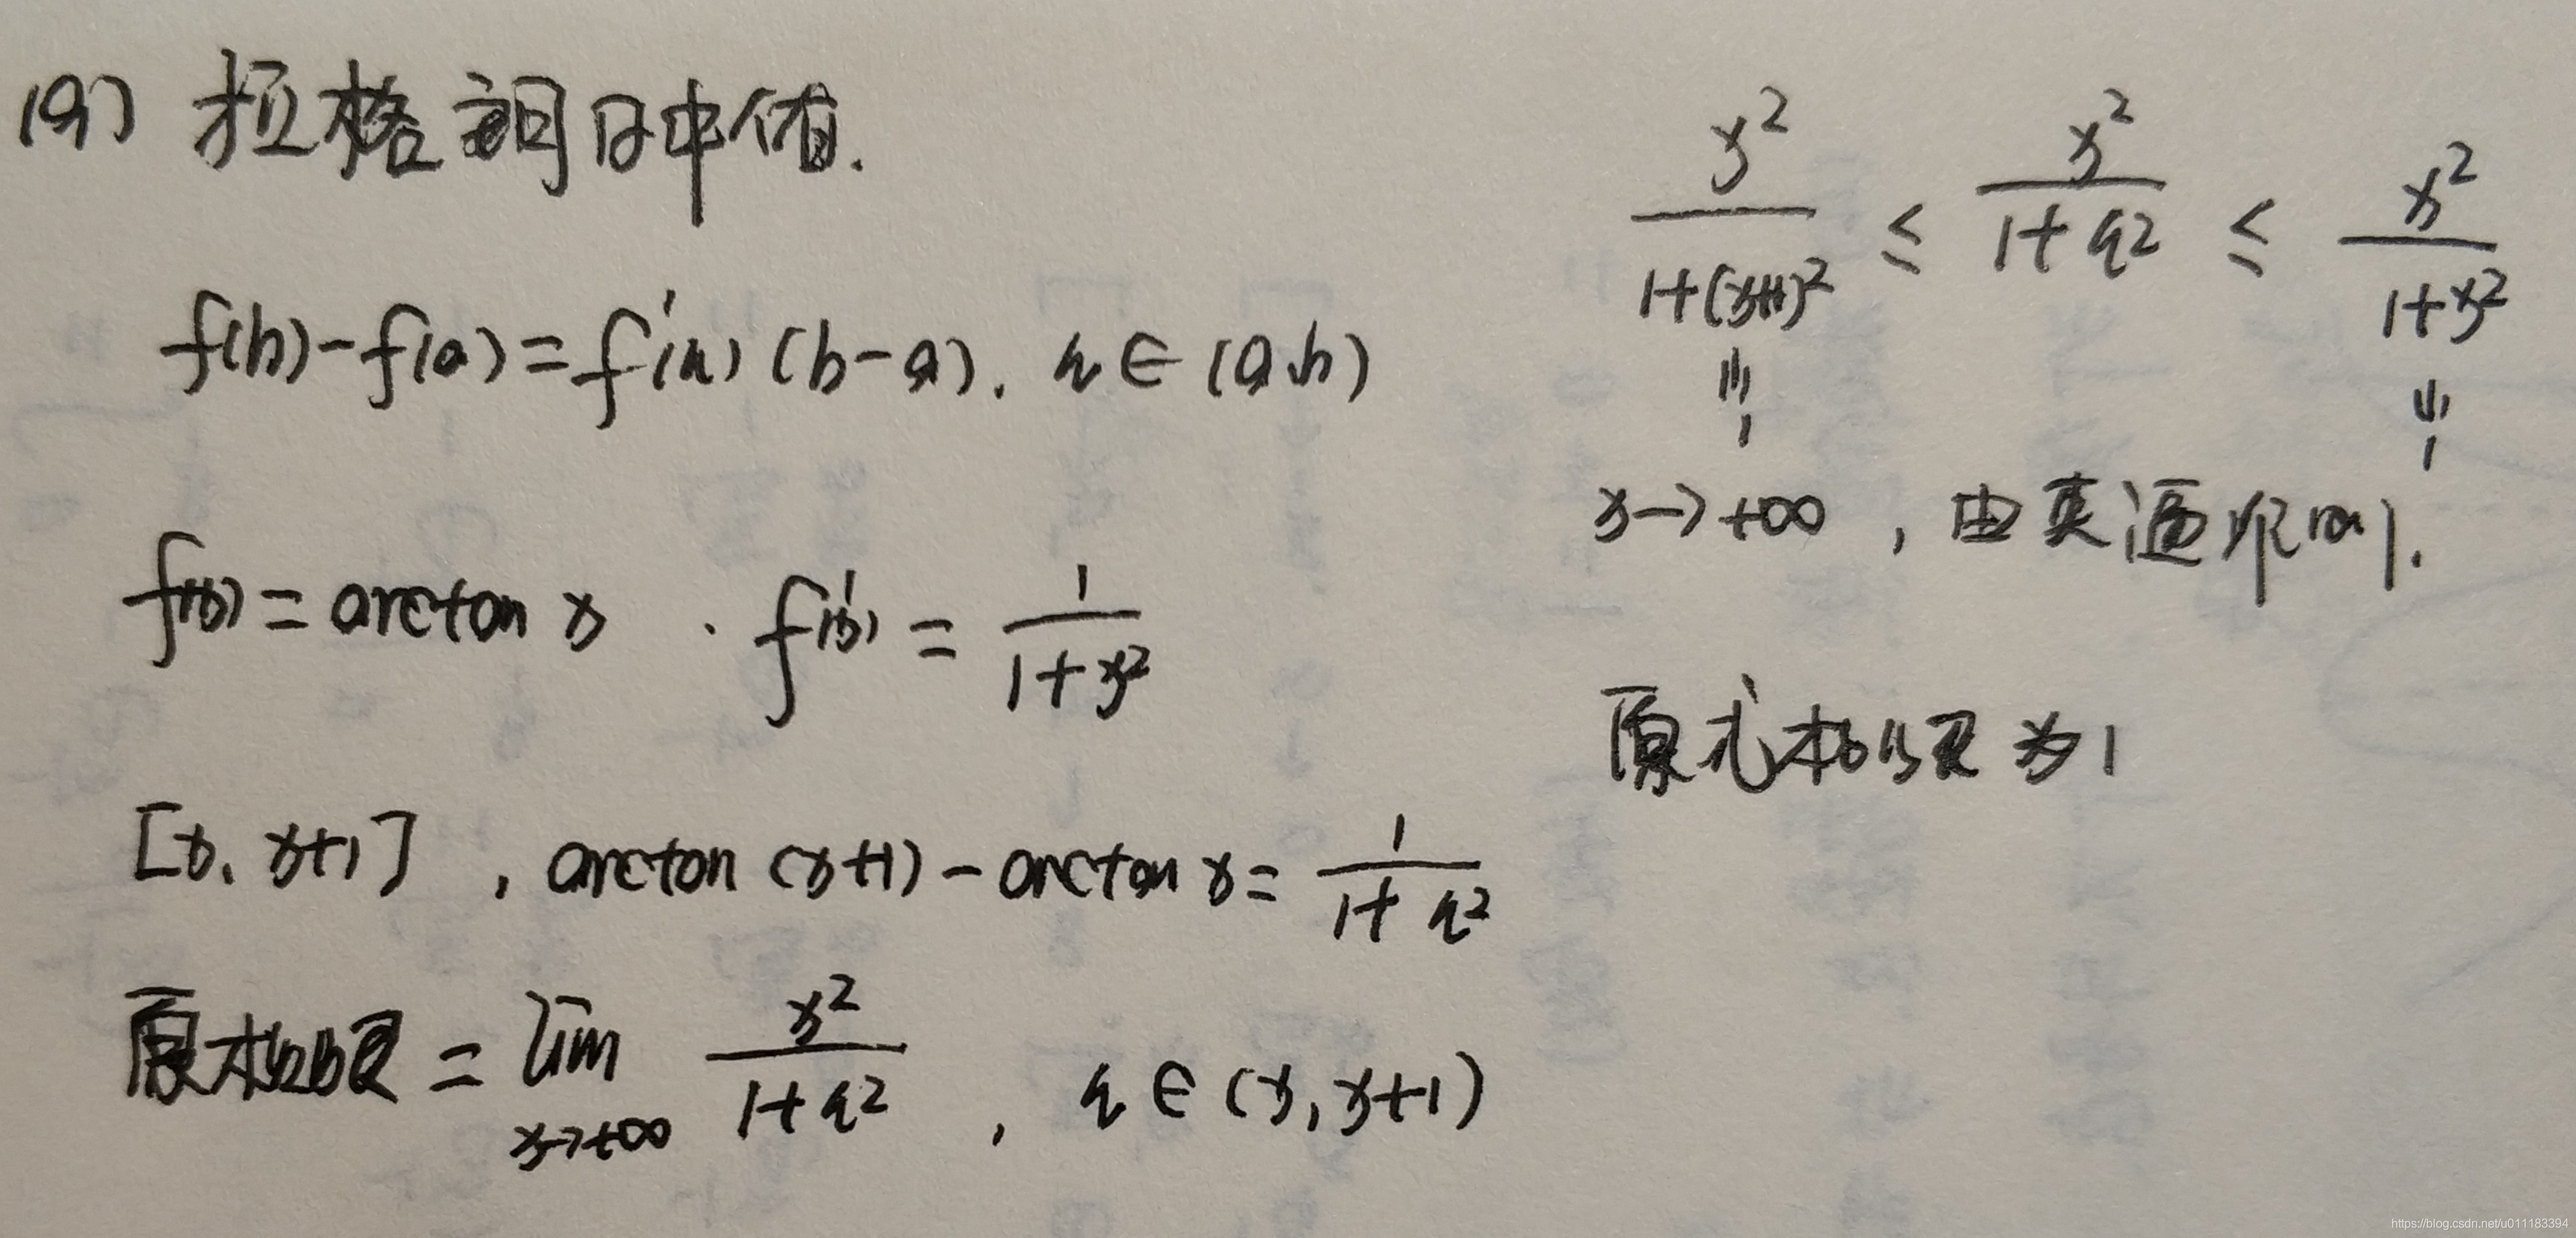 (9) 拉格朗日中值.
f(b)-f(a)=f'(η)(b-a). η∈(a,b)
f(x)=arctan x . f'(x)=1/(1+x²)
[x, x+1] , arctan(x+1)-arctan x=1/(1+η²)
原极限=lim x→+∞ x²/(1+η²) , η∈(x,x+1)
x²/(1+(x+1)²) ≤ x²/(1+η²) ≤ x²/(1+x²)
= 1 = 1
x→+∞ , 由夹逼准则.
原式极限为1
https://blog.csdn.net/u011183394